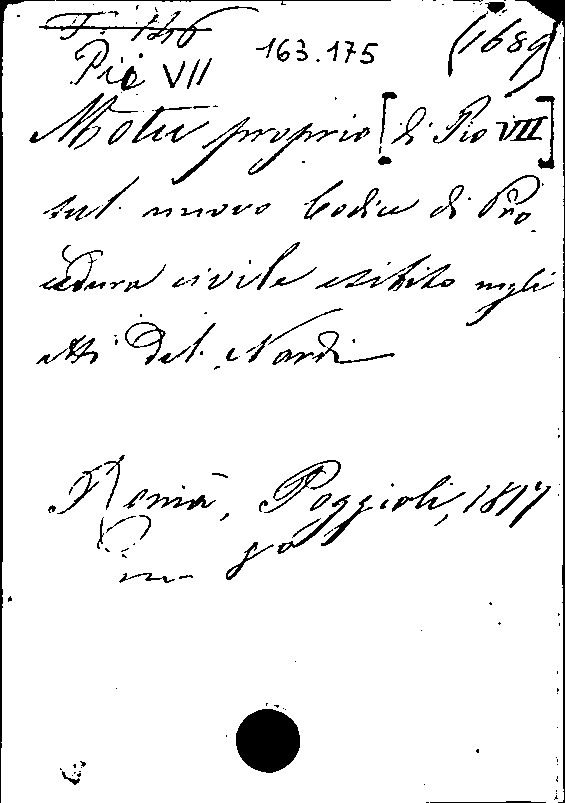 T. 146
163.175
(1689)
Pio VII
Motu proprio [di Pio VIII]
sul nuovo Codice di Pro
cedura civile esibito negli
atti del Nardi
Roma, Poggioli, 1817
in fo